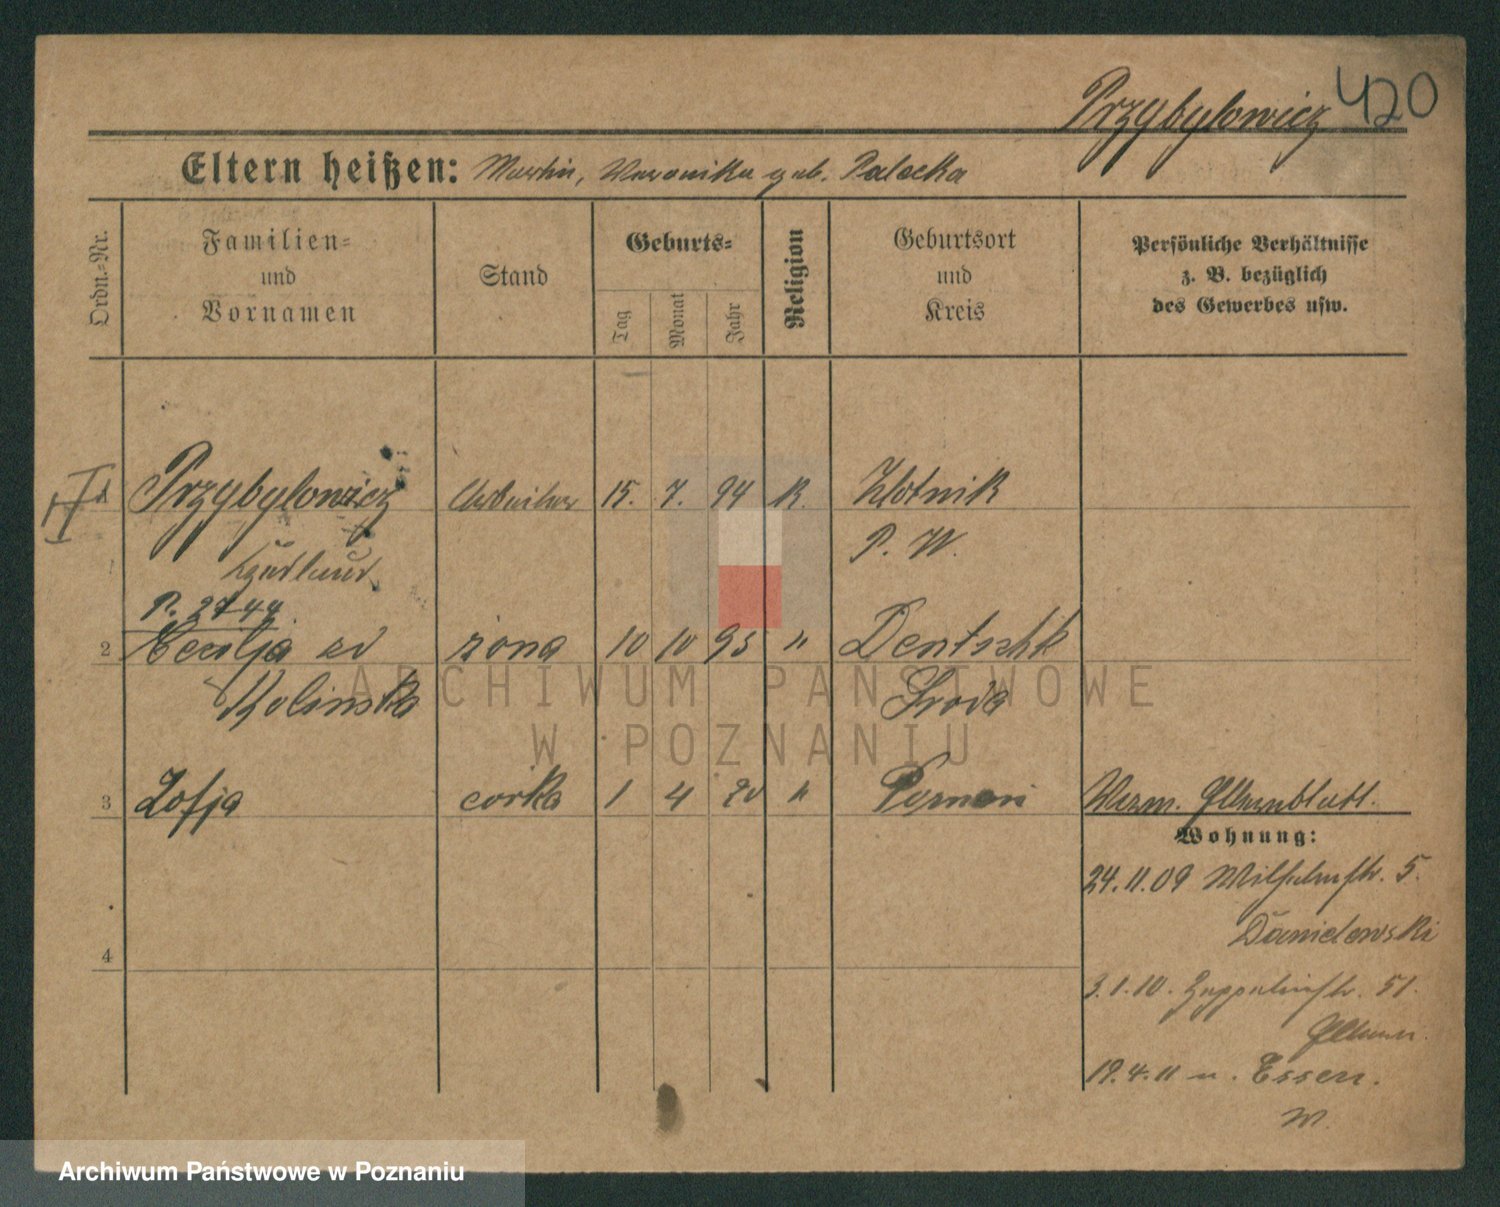 Przybylowicz 420
Eltern heißen: Martin, Weronika geb. Palacka
Ordn.-Nr.
Familien-
und
Vornamen
Stand
Geburts-
Tag
Monat
Jahr
Religion
Geburtsort
und
Kreis
Persönliche Verhältnisse
z. B. bezüglich
des Gewerbes usw.
1 Przybylowicz Arbeiter 15. 7. 94 K. Zlotnik
P. W.
P. 2744
2 Cecelja zd żona 10 10 95 " Dentschk
Kolinska Sroda
3 Zofja córka 1 4 20 " Poznań Verm. Elternblatt.
Wohnung:
24.11.09 Wilhelmstr. 5.
Danielowski
4
3.1.10. Zeppelinstr. 51.
Eltern.
19.4.11 n. Essen.
W.
ARCHIWUM PAŃSTWOWE
W POZNANIU
Archiwum Państwowe w Poznaniu